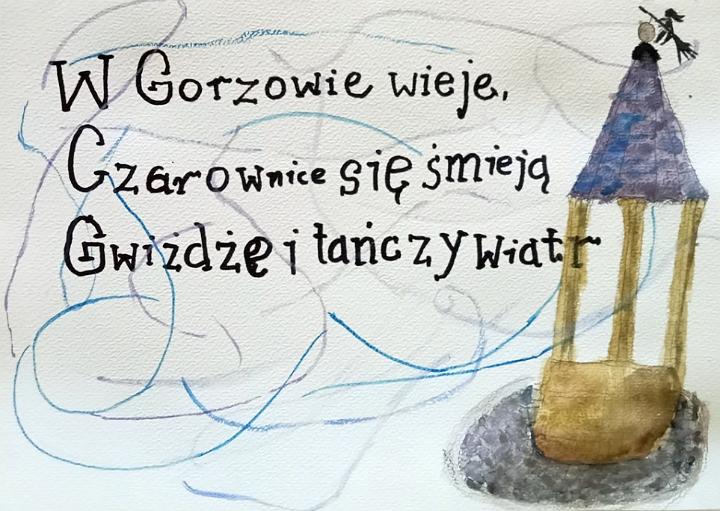 W Gorzowie wieje,
Czarownice się śmieją
Gwiżdżę i tańczy wiatr